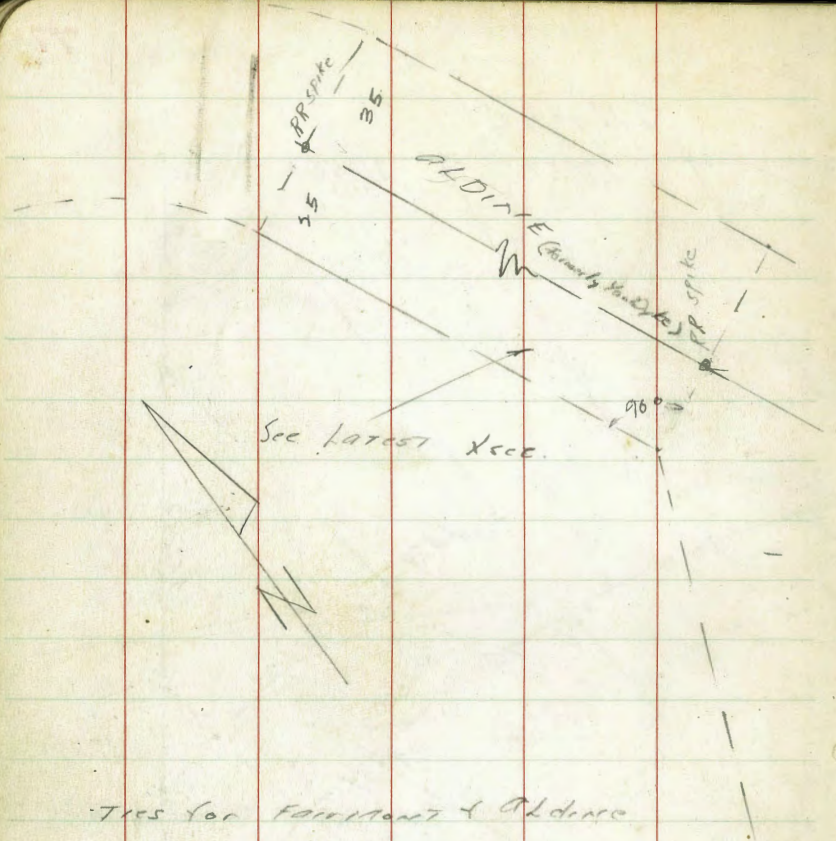 RR spike
35
35
ALDINE
(Formerly Van Dyke)
RR spike
90°
See Latest Xsec.
N
Ties for Fairmont & Aldine